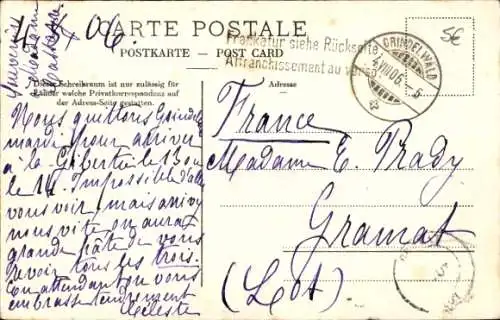 4/7/06.
CARTE POSTALE
POSTKARTE — POST CARD
Frankatur siehe Rückseite
Affranchissement au verso
GRINDELWALD
4.VII.06. 5
5€
Souvenir
Madame
Dieser Schreibraum ist nur zulässig für
Länder welche Privatkorrespondenz auf
der Adress-Seite gestatten.
Adresse
Nous quittons Grindel
wald pour arriver
à la Gibertie le 13 ou
le 14. Impossible d'aller
vous voir, mais arrivez
nous vite on aura
grande hâte de vous
revoir tous les trois.
En attendant on vous
embrasse tendrement
Céleste
France
Madame E. Prady
Gramat
(Lot)